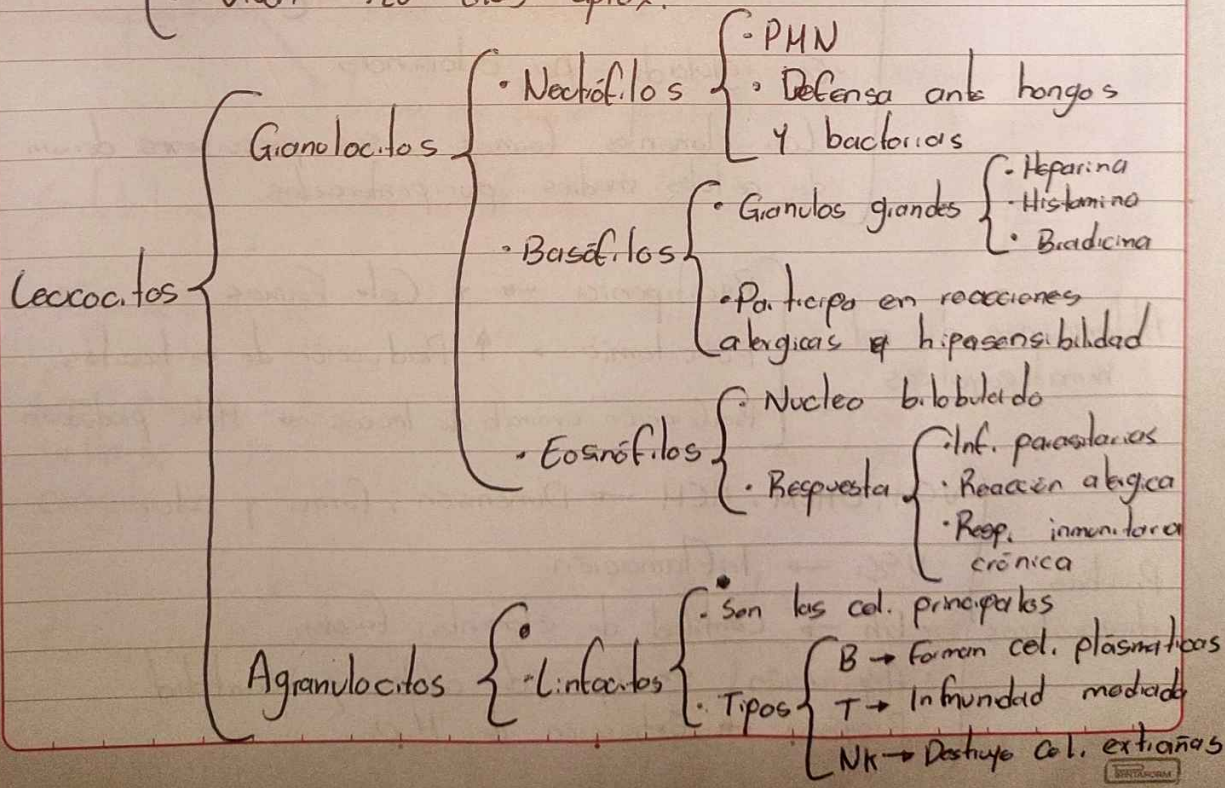 Leucocitos
Granulocitos
· Neutrófilos
· PMN
· Defensa ante hongos
y bacterias
· Basófilos
· Granulos grandes
· Heparina
· Histamina
· Bradicina
· Participa en reacciones
alergicas e hipesensibilidad
· Eosinófilos
· Nucleo bilobulado
· Respuesta
· Inf. parasitarias
· Reacción alergica
· Resp. inmunitaria
crónica
Agranulocitos
· Linfocitos
· Son las cel. principales
· Tipos
B → Forman cel. plásmaticas
T → Inmunidad mediada
NK → Destruye cel. extrañas